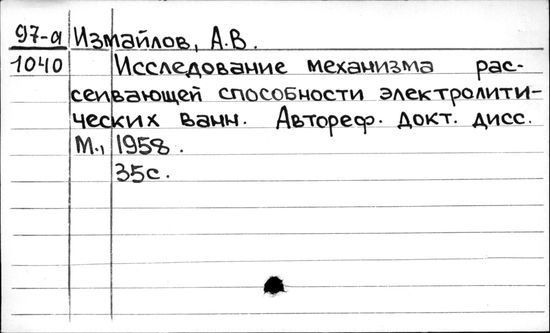 97-а Измайлов, А.В.
1040 Исследование механизма рас-
сеивающей способности электролити-
ческих ванн. Автореф. докт. дисс.
М., 1958.
35с.